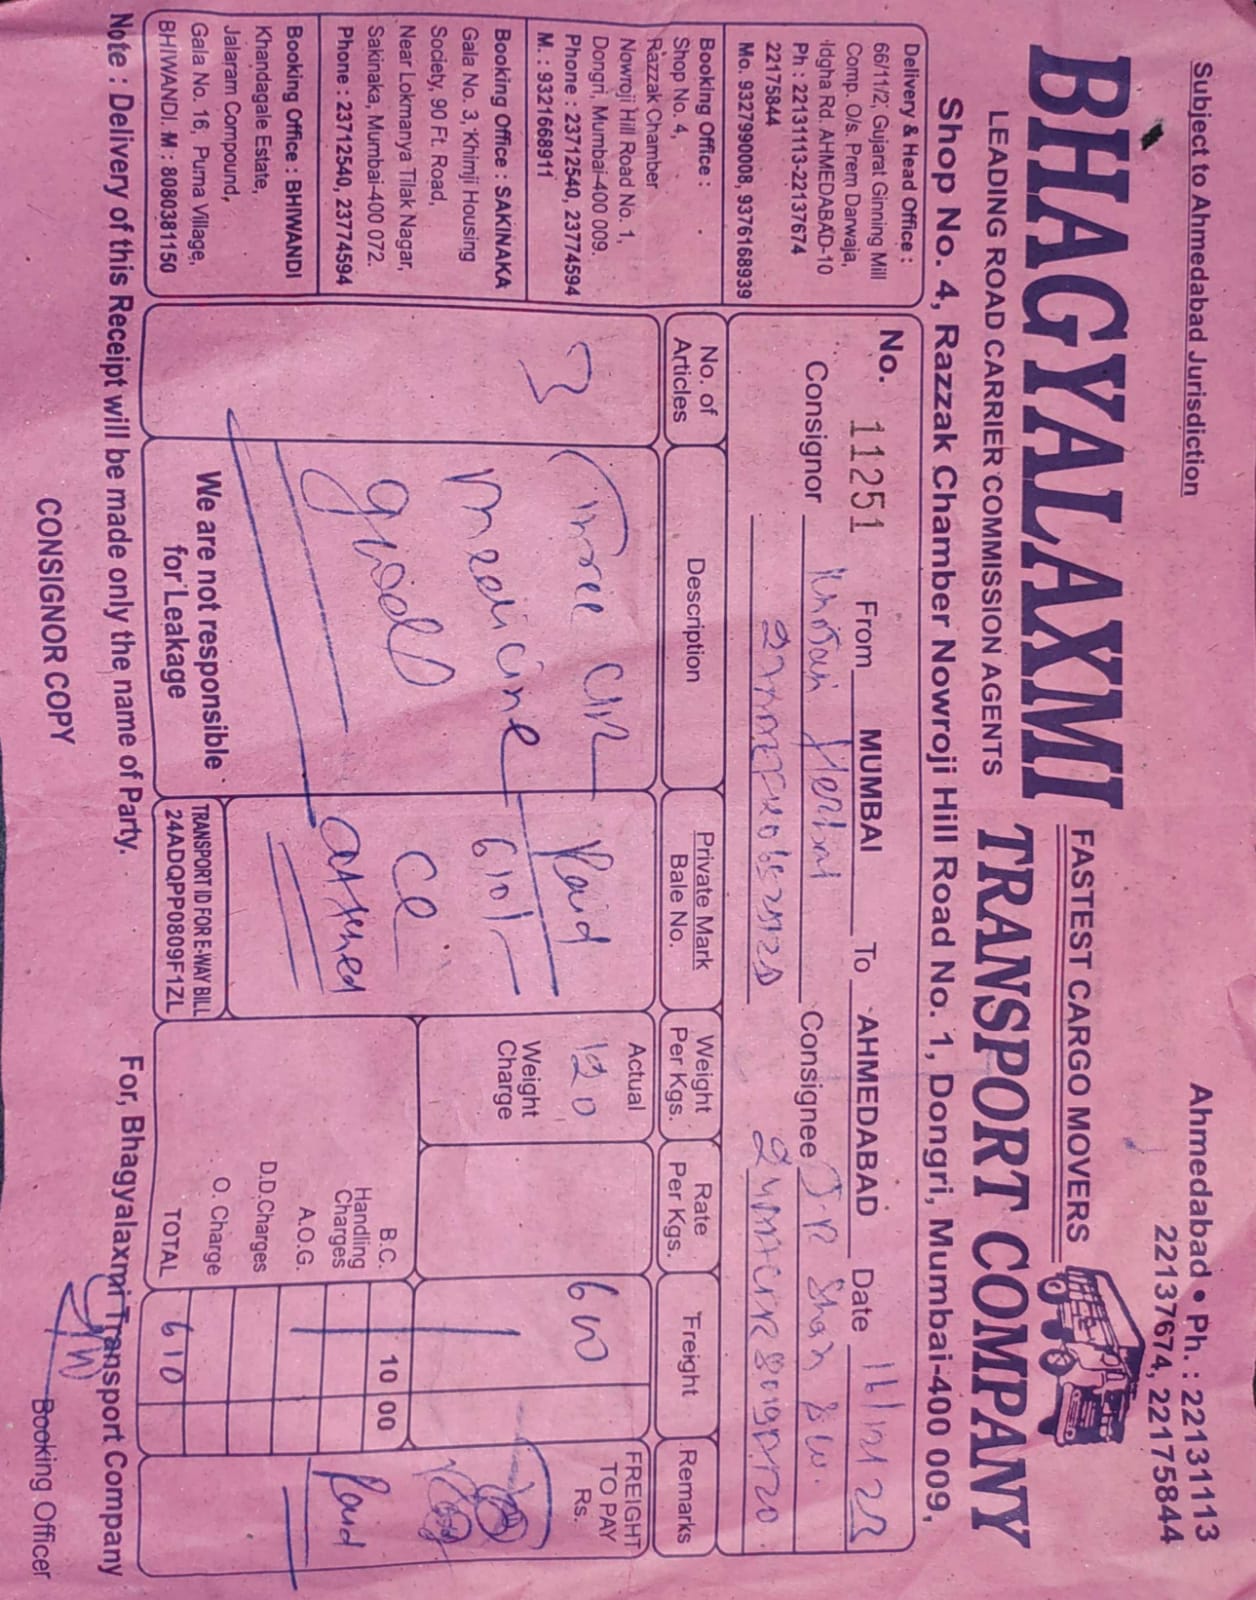 Subject to Ahmedabad Jurisdiction
Ahmedabad • Ph. : 22131113
22137674, 22175844
BHAGYALAXMI
FASTEST CARGO MOVERS
TRANSPORT COMPANY
LEADING ROAD CARRIER COMMISSION AGENTS
Shop No. 4, Razzak Chamber Nowroji Hill Road No. 1, Dongri, Mumbai-400 009.
Delivery & Head Office :
66/11/2, Gujarat Ginning Mill
Comp. O/s. Prem Darwaja,
Idgha Rd. AHMEDABAD-10
Ph : 22131113-22137674
22175844
Mo. 9327990008, 9376168939
Booking Office :
Shop No. 4,
Razzak Chamber
Nowroji Hill Road No. 1,
Dongri, Mumbai-400 009.
Phone : 23712540, 23774594
M. : 9321668911
Booking Office : SAKINAKA
Gala No. 3, Khimji Housing
Society, 90 Ft. Road,
Near Lokmanya Tilak Nagar,
Sakinaka, Mumbai-400 072.
Phone : 23712540, 23774594
Booking Office : BHIWANDI
Khandagale Estate,
Jalaram Compound,
Gala No. 16, Purna Village,
BHIWANDI. M : 8080381150
No. 11251 From MUMBAI To AHMEDABAD Date
Consignor Consignee
No. of Articles
Description
Private Mark Bale No.
Weight Per Kgs.
Rate Per Kgs.
Freight
Remarks
3
Three
Medicine
good
Paid
610/-
Actual
120
Weight Charge
600
FREIGHT TO PAY Rs.
B.C. 10 00
Handling Charges
A.O.G.
D.D.Charges
O. Charge
TOTAL 610
Paid
We are not responsible for Leakage
TRANSPORT ID FOR E-WAY BILL
24ADQPP0809F1ZL
Note : Delivery of this Receipt will be made only the name of Party.
For, Bhagyalaxmi Transport Company
CONSIGNOR COPY
Booking Officer